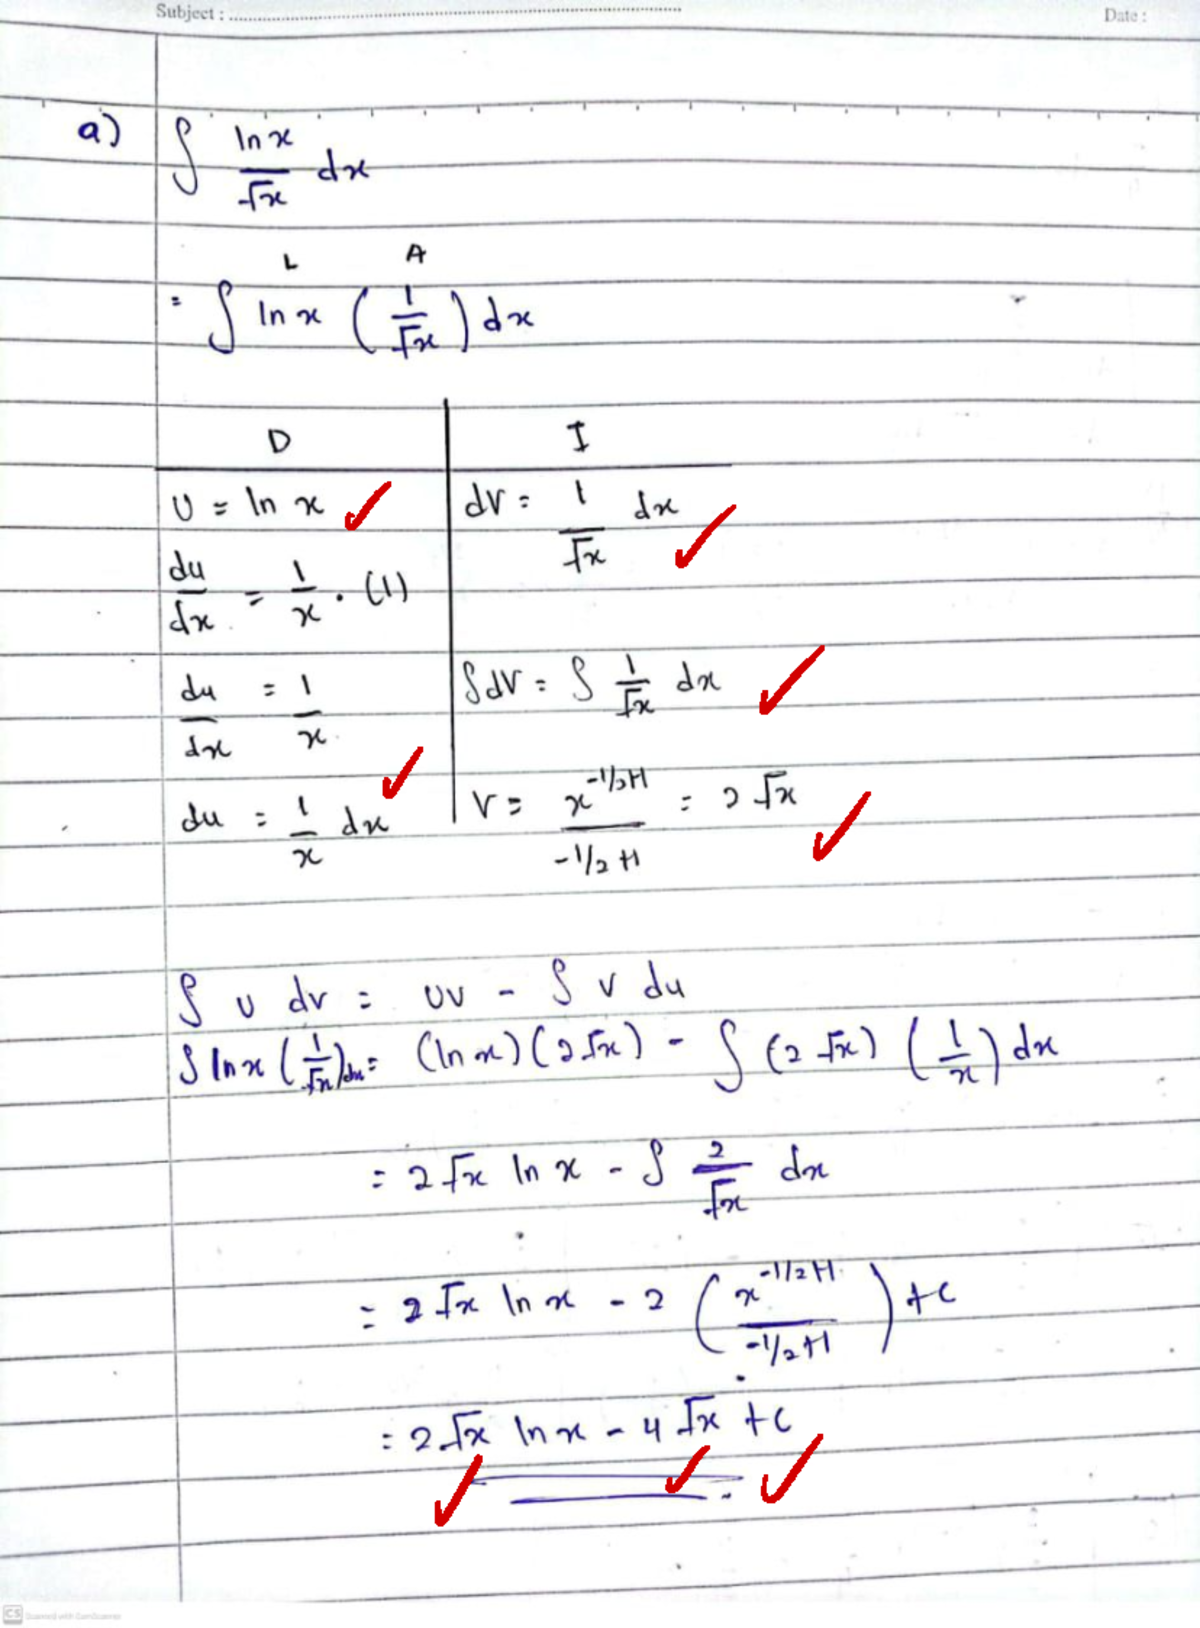 Subject : Date :
a) ∫ ln x / √x dx
L A
= ∫ ln x ( 1/√x ) dx
D I
u = ln x dv = 1/√x dx
du/dx = 1/x . (1)
du/dx = 1/x ∫dv = ∫ 1/√x dx
du = 1/x dx v = x^(-1/2+1) / (-1/2+1) = 2√x
∫ u dv = uv - ∫ v du
∫ ln x ( 1/√x ) dx = (ln x)(2√x) - ∫ (2√x) ( 1/x ) dx
= 2√x ln x - ∫ 2/√x dx
= 2√x ln x - 2 ( x^(-1/2+1) / (-1/2+1) ) + c
= 2√x ln x - 4√x + c
CS Scanned with CamScanner